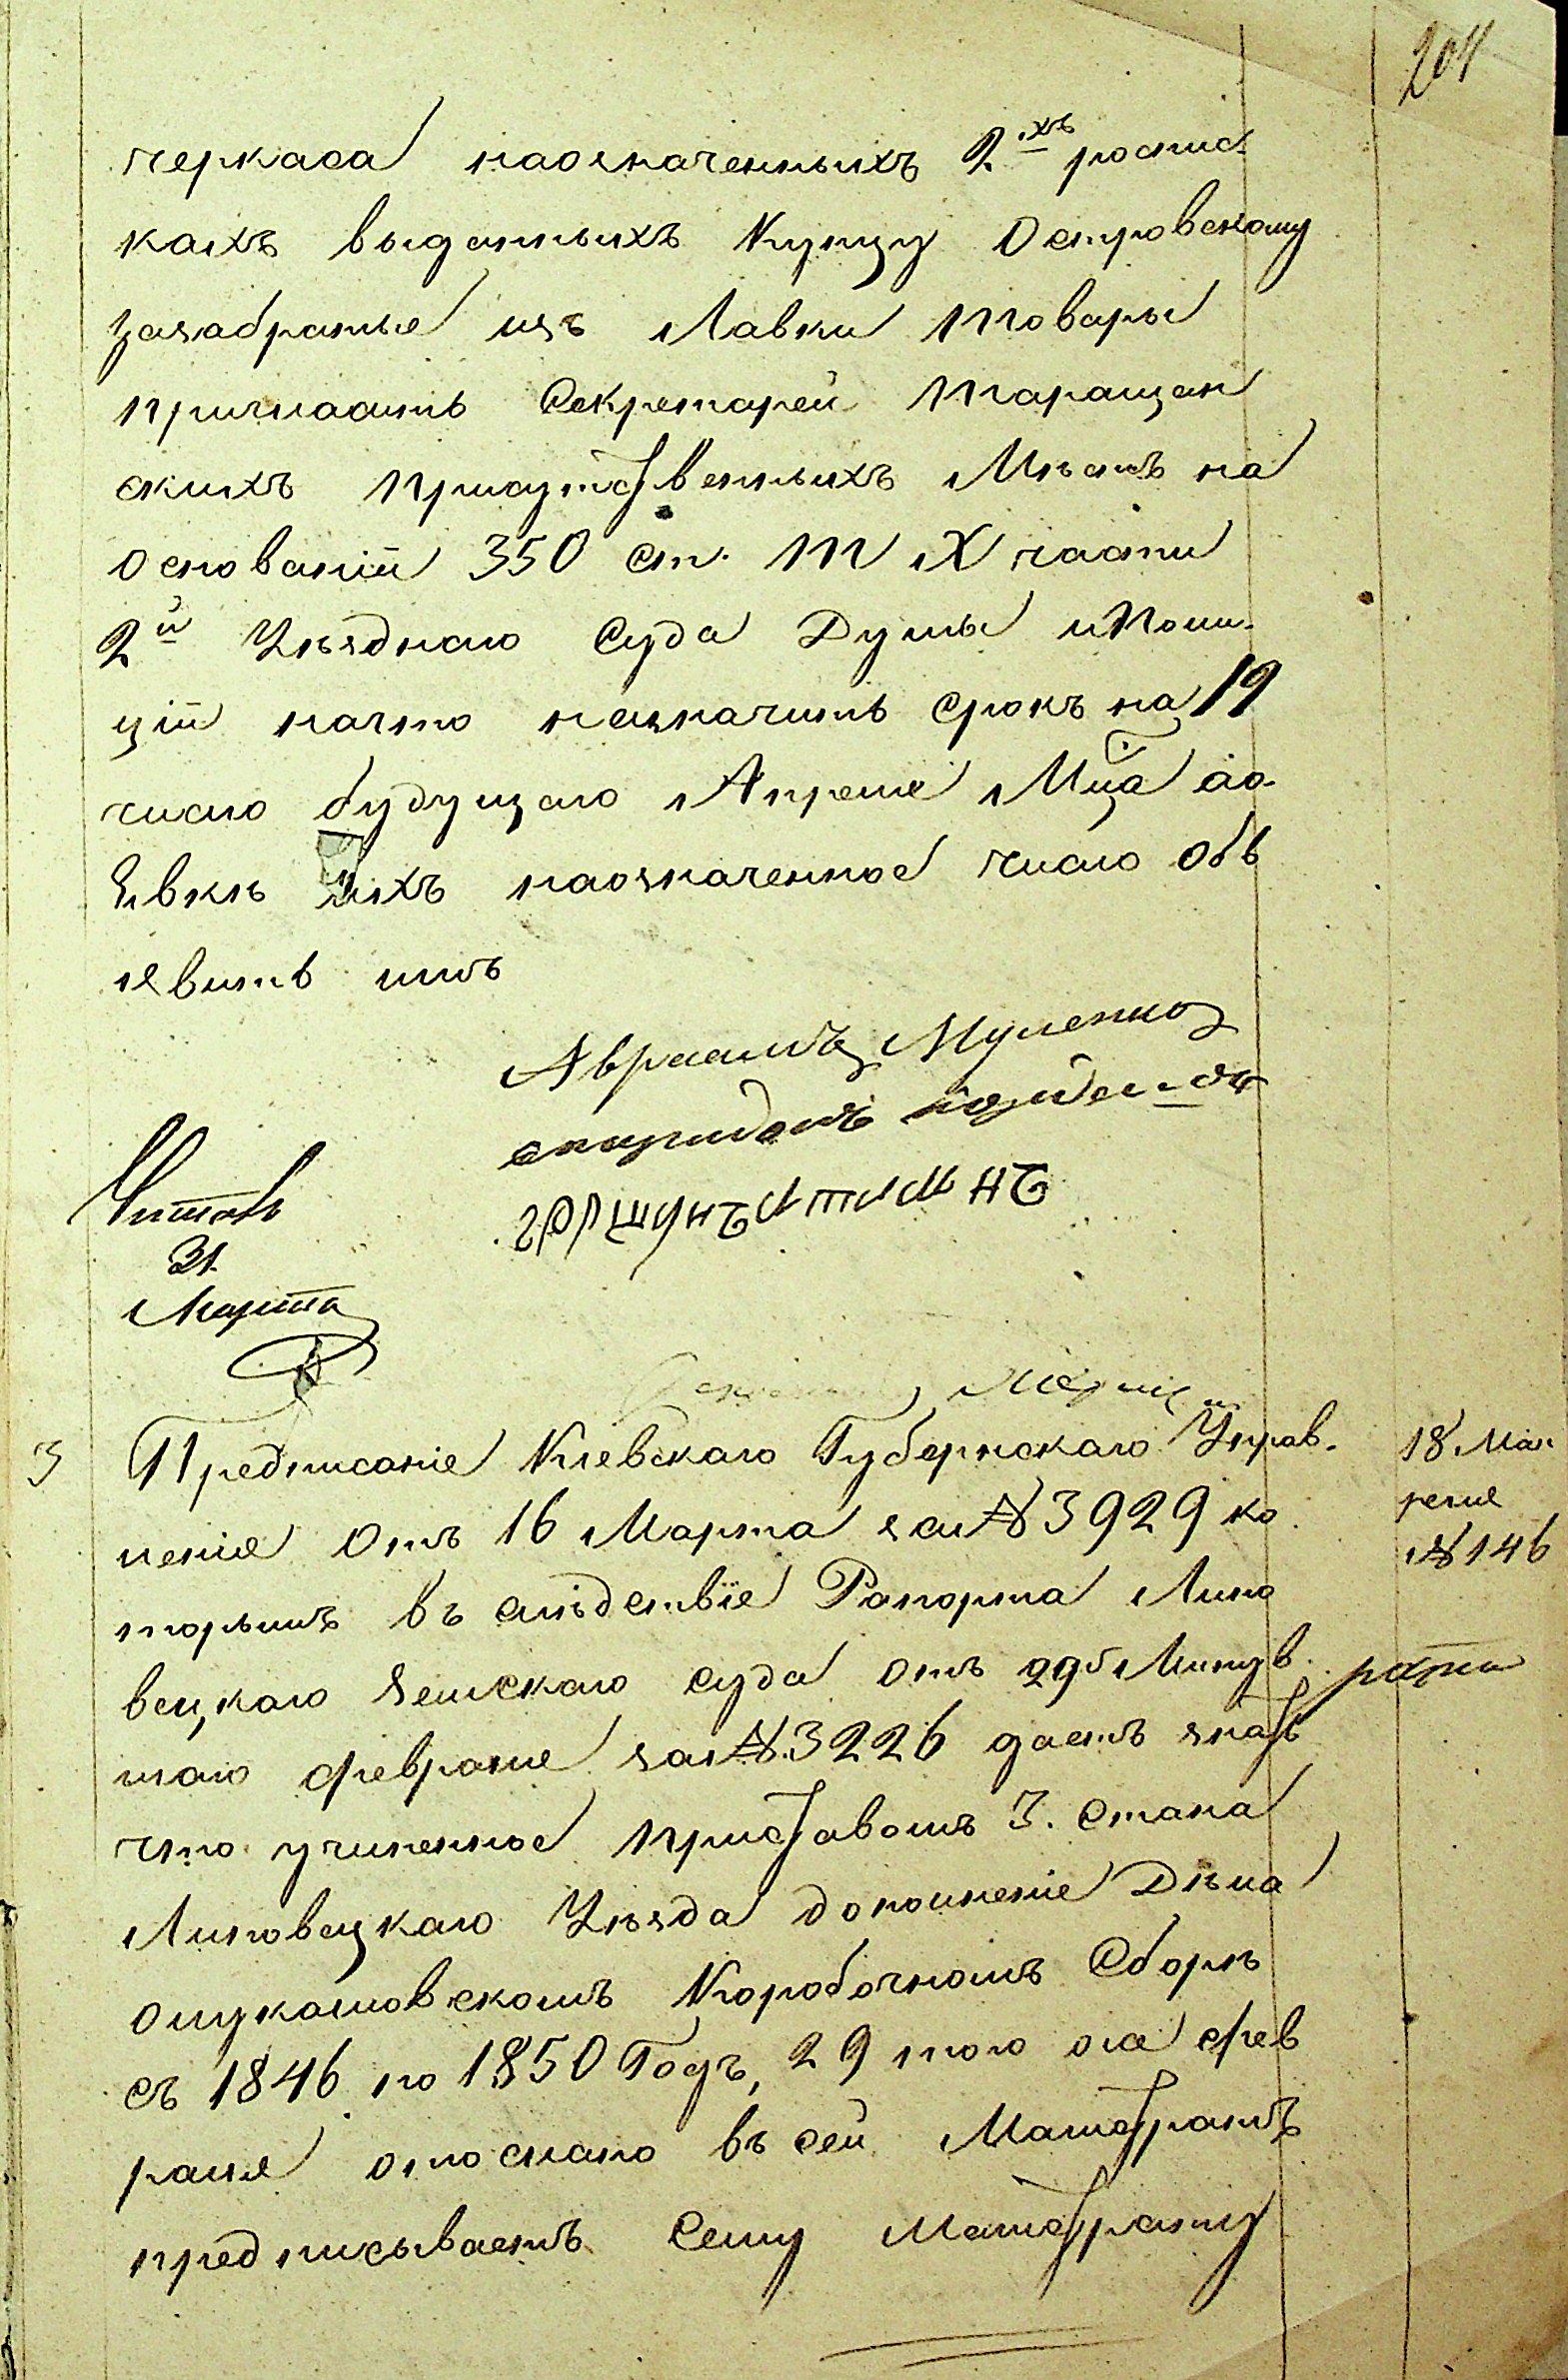 204
черкаса наозначенныхъ 2хъ роспис
кахъ выданныхъ Купцу Островскому
зазабратые изъ Лавки товары
пригласить Секретарей Таращан
скихъ присутственныхъ Мѣстъ на
основаніи 350 ст. Т X части
2й Уѣзднаго Суда Думы иПоли-
ціи начто назначить срокъ на 19
число будущаго Апреля Мца аo
явкѣ ихъ наозначенное число объ
явить имъ
Авраамъ
Читалъ
31
Марта
3 Предписаніе Кіевскаго Губернскаго Управ-
ленія Отъ 16 Марта за № 3929 ко
торымъ въ слѣдствіе Рапорта Липо
вецкаго Земскаго суда отъ 29 Минув
шаго февраля за № 3226 даетъ знать
что учиненное приставомъ 3. стана
Липовецкаго Уѣзда дополненіе Дѣла
олукашовскомъ Коробочномъ Сборѣ
съ 1846 по 1850 Годъ, 29 того жe фев
раля отослано въ сей Магистратъ
предписываетъ Сему Магистрату
18 Ма-
№ 146